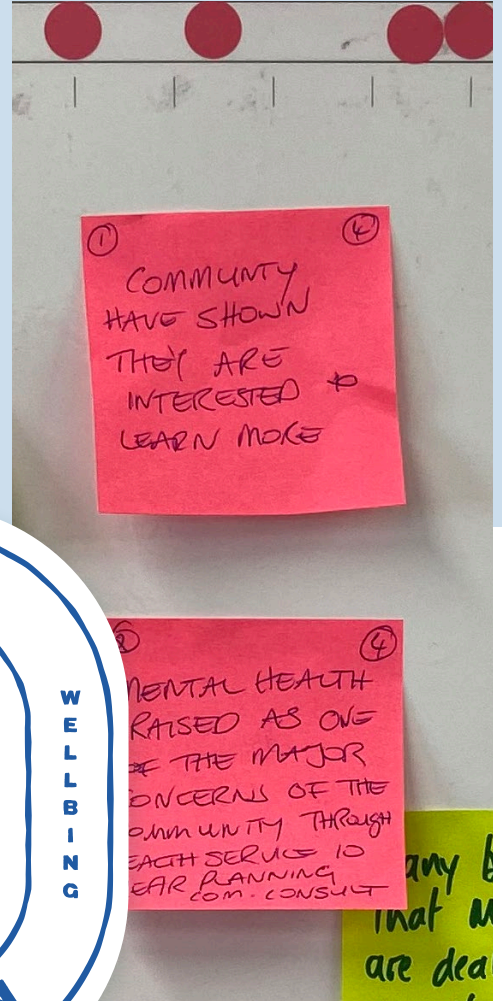 ① ④
COMMUNTY
HAVE SHOWN
THEY ARE
INTERESTED to
LEARN MORE
④
MENTAL HEALTH
RAISED AS ONE
OF THE MAJOR
CONCERNS OF THE
COMMUNITY THROUGH
HEALTH SERVICE 10
YEAR PLANNING
COM. CONSULT
WELLBING
any
that
are